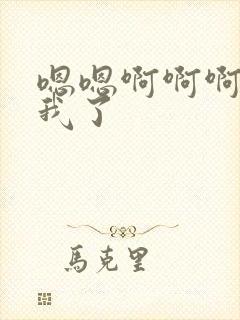 嗯嗯啊啊啊
我了
馬克里